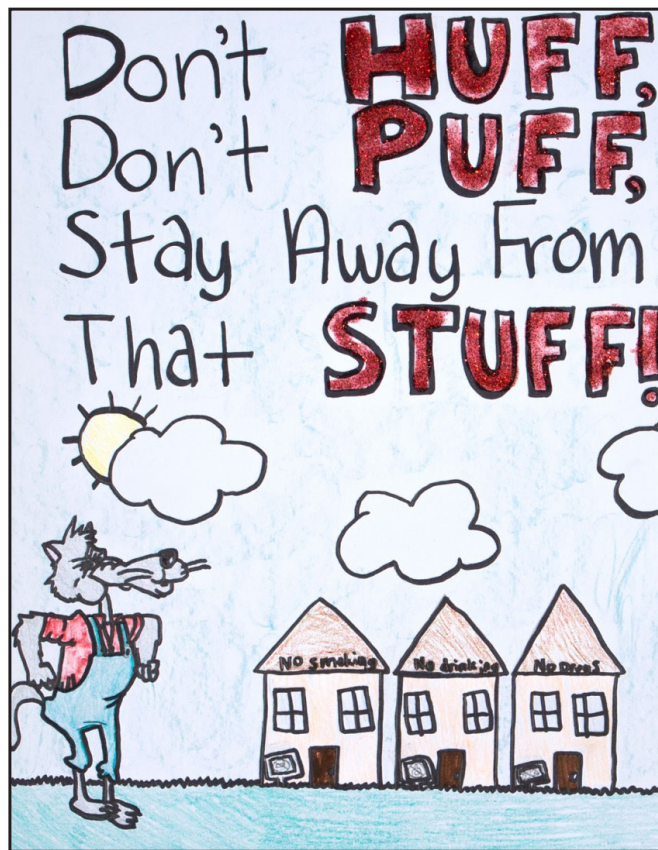 Don't HUFF,
Don't PUFF,
Stay Away From
That STUFF!
No smoking
No drinking
No Drugs